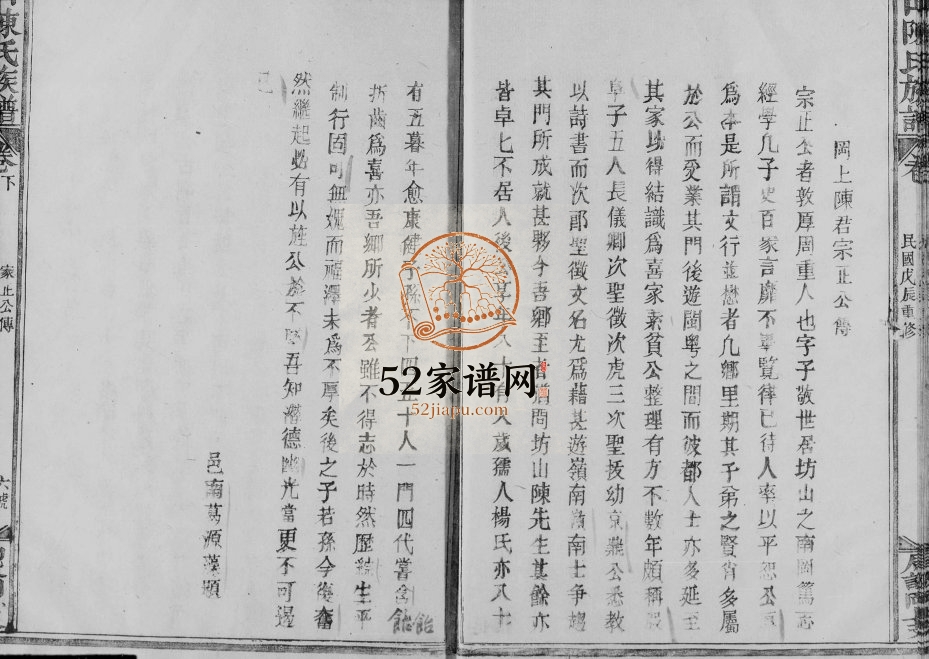 岡上陳君宗正公傳
宗正公者敦厚周重人也字子敬世居坊山之南岡篤志
經學凡子史百家言靡不畢覽律已待人率以平恕公
為本是所謂文行並懋者凡鄉里期其子弟之賢肖多屬
於公而受業其門後遊閩粵之間而彼都人士亦多延至
其家以得結識為喜家素貧公整理有方不數年頗稱
阜子五人長儀卿次聖徵次虎三次聖拔幼京鼎公悉教
以詩書而次郎聖徵文名尤為藉甚遊嶺南嶺南士爭趨
其門所成就甚夥今吾鄉王者猶問坊山陳先生其餘亦
皆卓七不居人後享年八十有八歲孺人楊氏亦八十
有五暮年愈康健子孫不下四五十人一門四代嘗含飴
為喜亦吾鄉所少者公雖不得志於時然歷緒生平
制行固可無媿而福澤未為不厚矣後之子若孫今復奮
然繼起必有以旌公於不吾知潛德幽光當更不可遏
已
邑南葛源
陳氏族譜
卷下
宗正公傳
六號
陳氏族譜
卷
民國戊辰重修
52家谱网
52jiapu.com